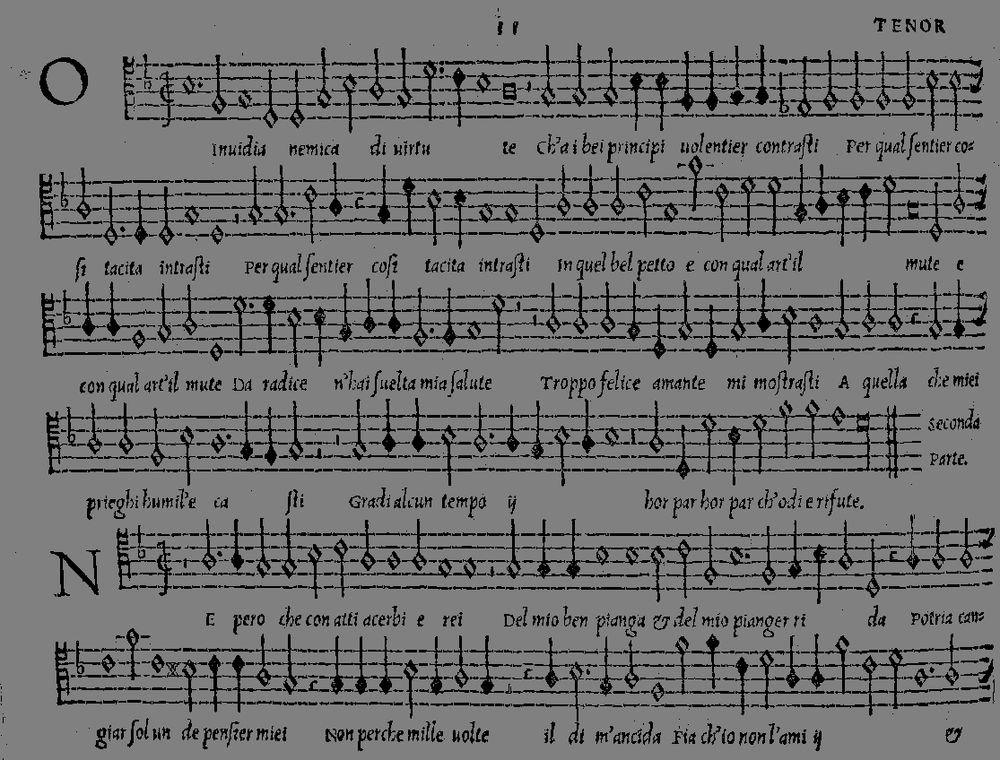 11 TENOR
O Inuidia nemica di uirtu te Ch'a i bei principi uolentier contrasti Per qual sentier co=
si tacita intrasti Per qual sentier cosi tacita intrasti In quel bel petto e con qual art'il mute e
con qual art'il mute Da radice n'hai suelta mia salute Troppo felice amante mi mostrasti A quella che miei
prieghi humil'e ca sti Gradi alcun tempo ij hor par hor par ch'odi e rifute.
Seconda
Parte.
N E pero che con atti acerbi e rei Del mio ben pianga & del mio pianger ri da Potria can=
giar sol un de pensier miei Non perche mille uolte il di m'ancida Fia ch'io non l'ami ij &